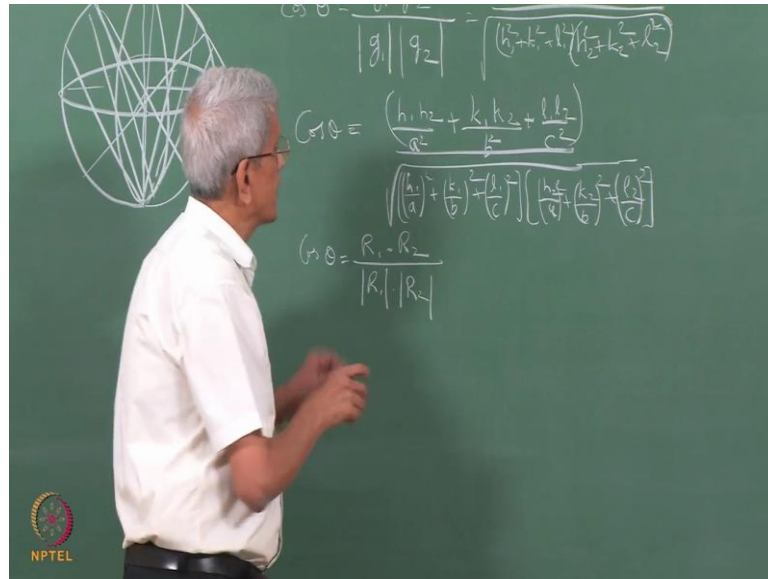 Cos θ = g₁ · g₂ / |g₁| |g₂| = / √(h₁²+k₁²+l₁²)(h₂²+k₂²+l₂²)
Cos θ = (h₁h₂/a² + k₁k₂/b² + l₁l₂/c²) / √[(h₁/a)² + (k₁/b)² + (l₁/c)²] [(h₂/a)² + (k₂/b)² + (l₂/c)²]
Cos θ = R₁ · R₂ / |R₁| · |R₂|
NPTEL